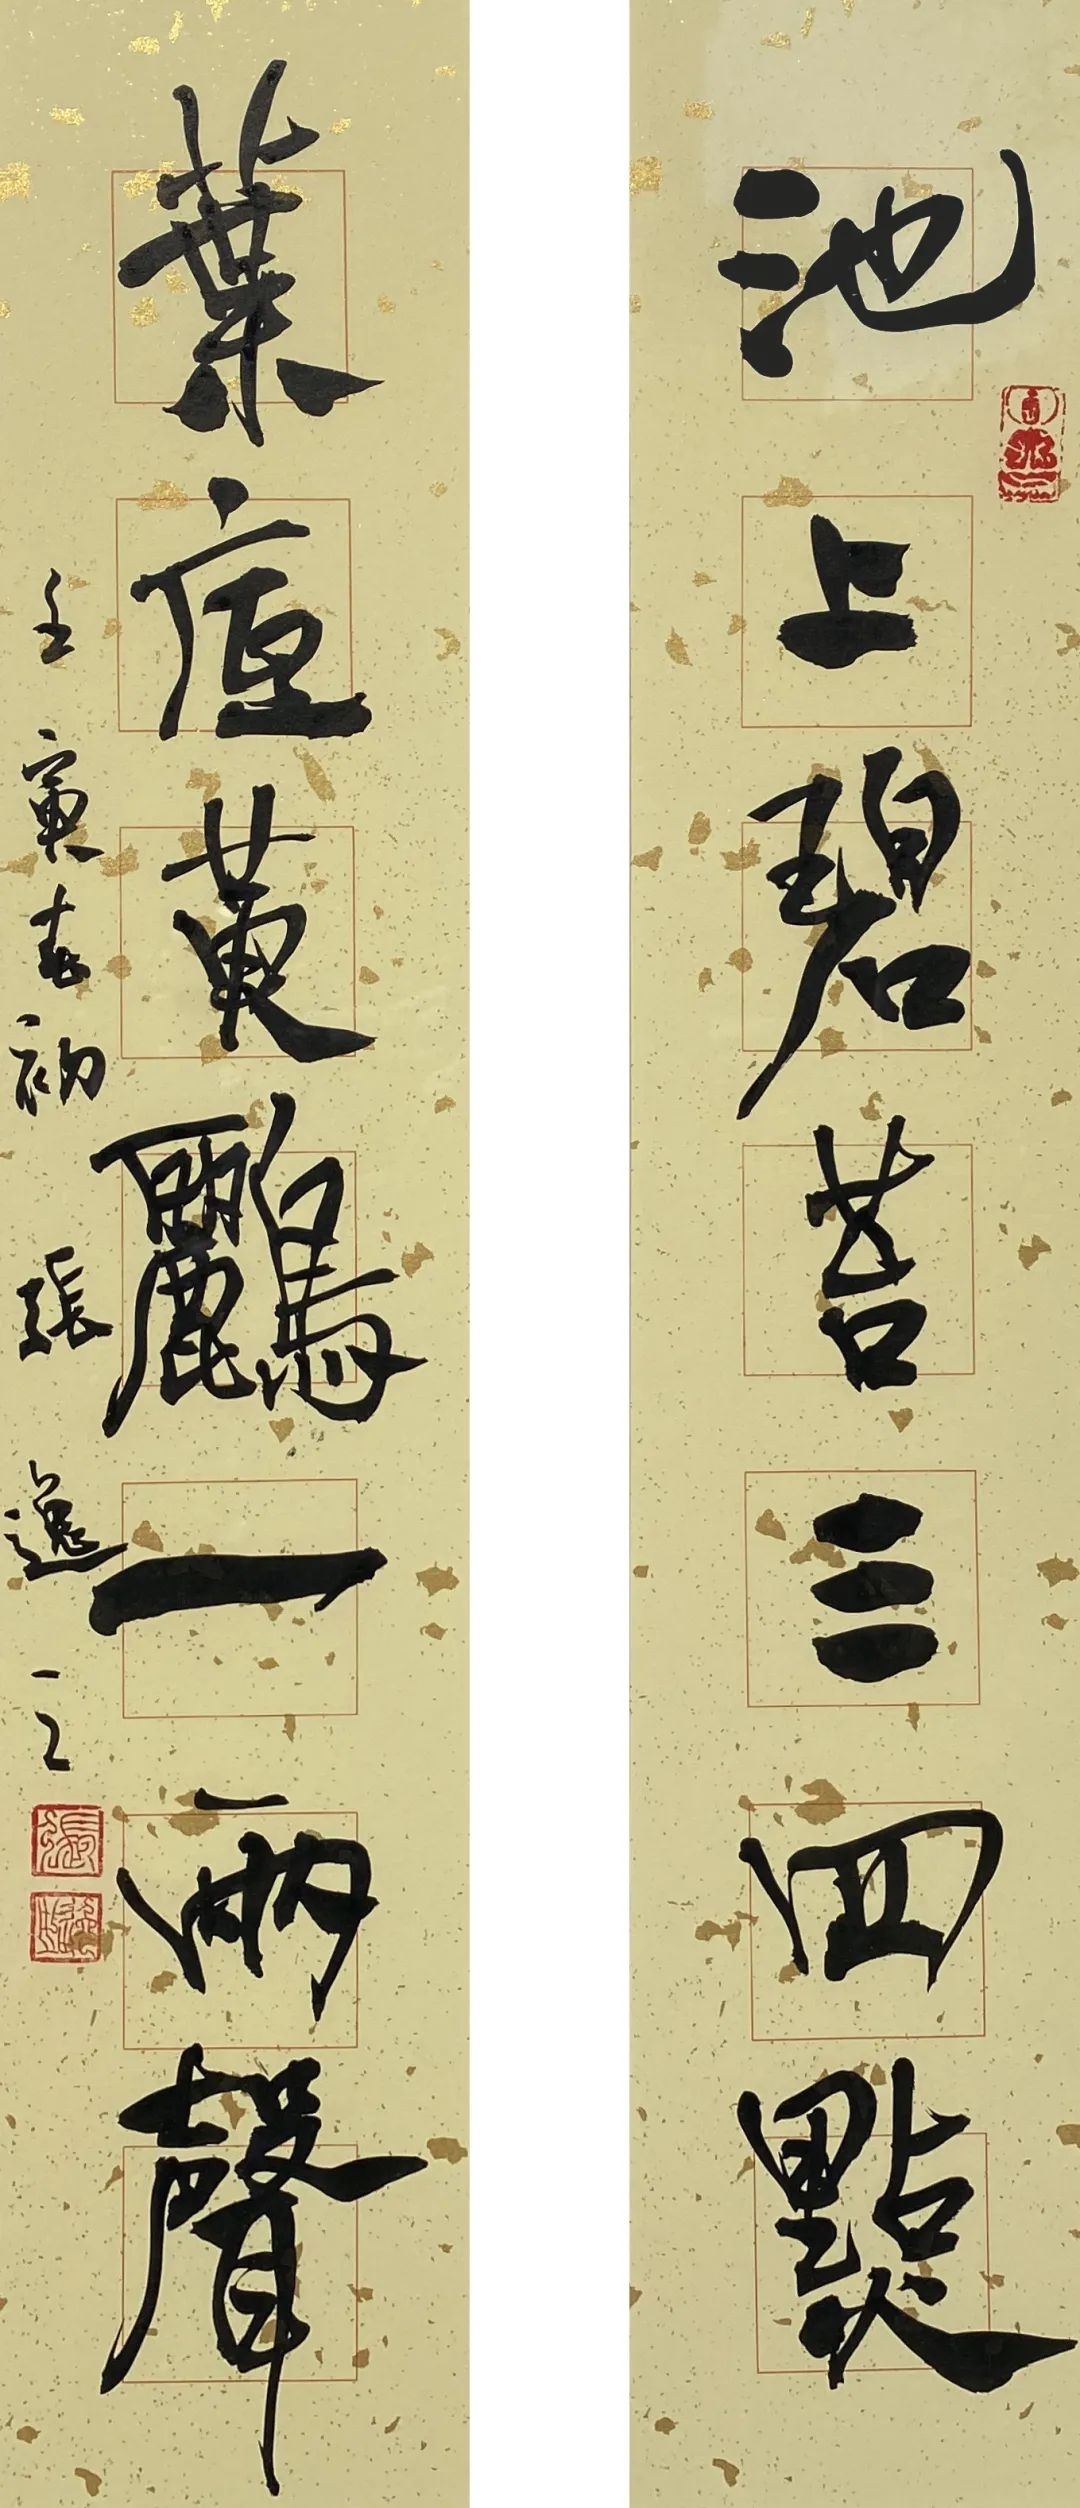 池上碧苔三四點
葉底黃鸝一兩聲
壬寅春初 張逸之
張